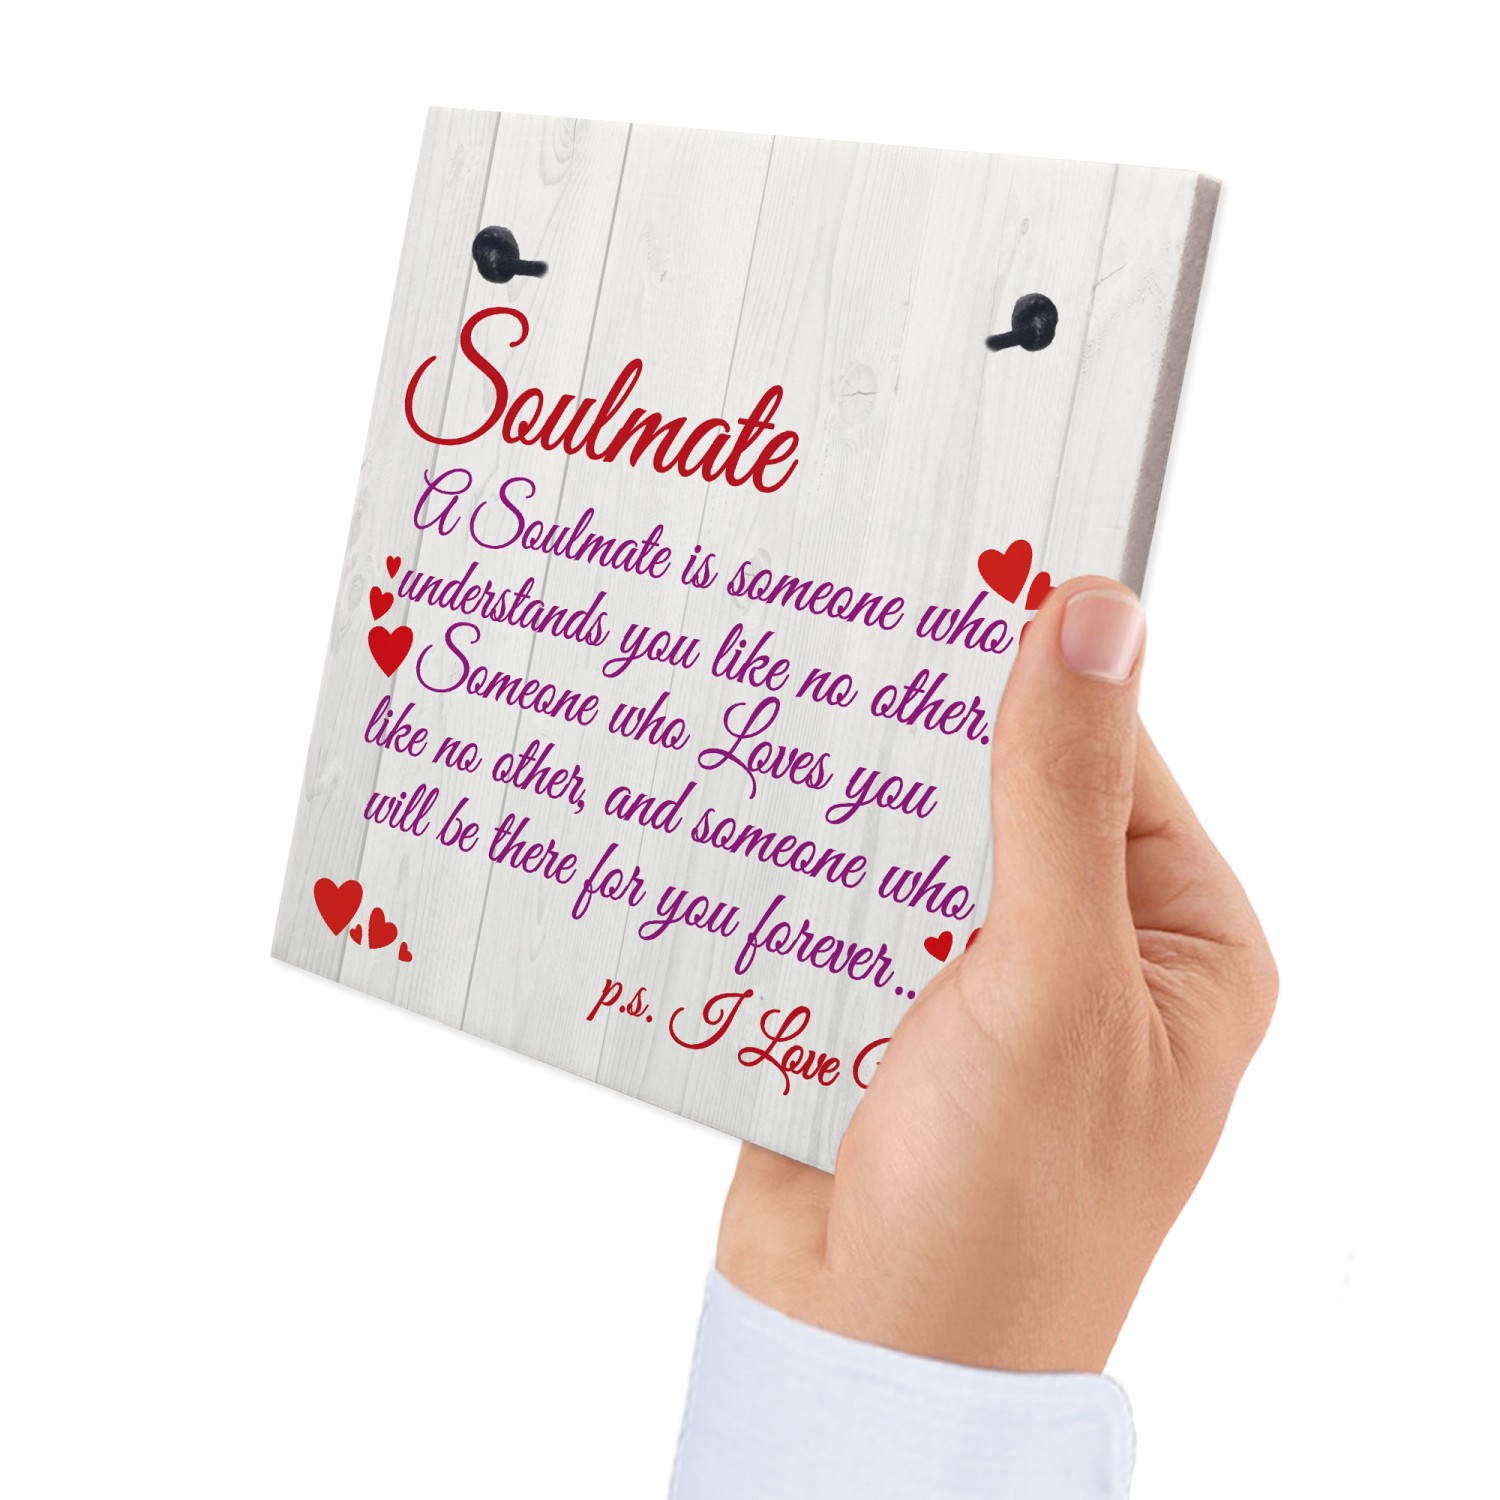 Soulmate
A Soulmate is someone who
understands you like no other.
Someone who Loves you
like no other, and someone who
will be there for you forever...
p.s. I Love